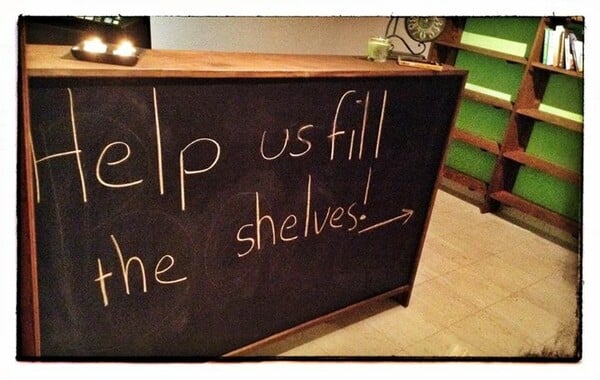 Help us fill
the shelves! →